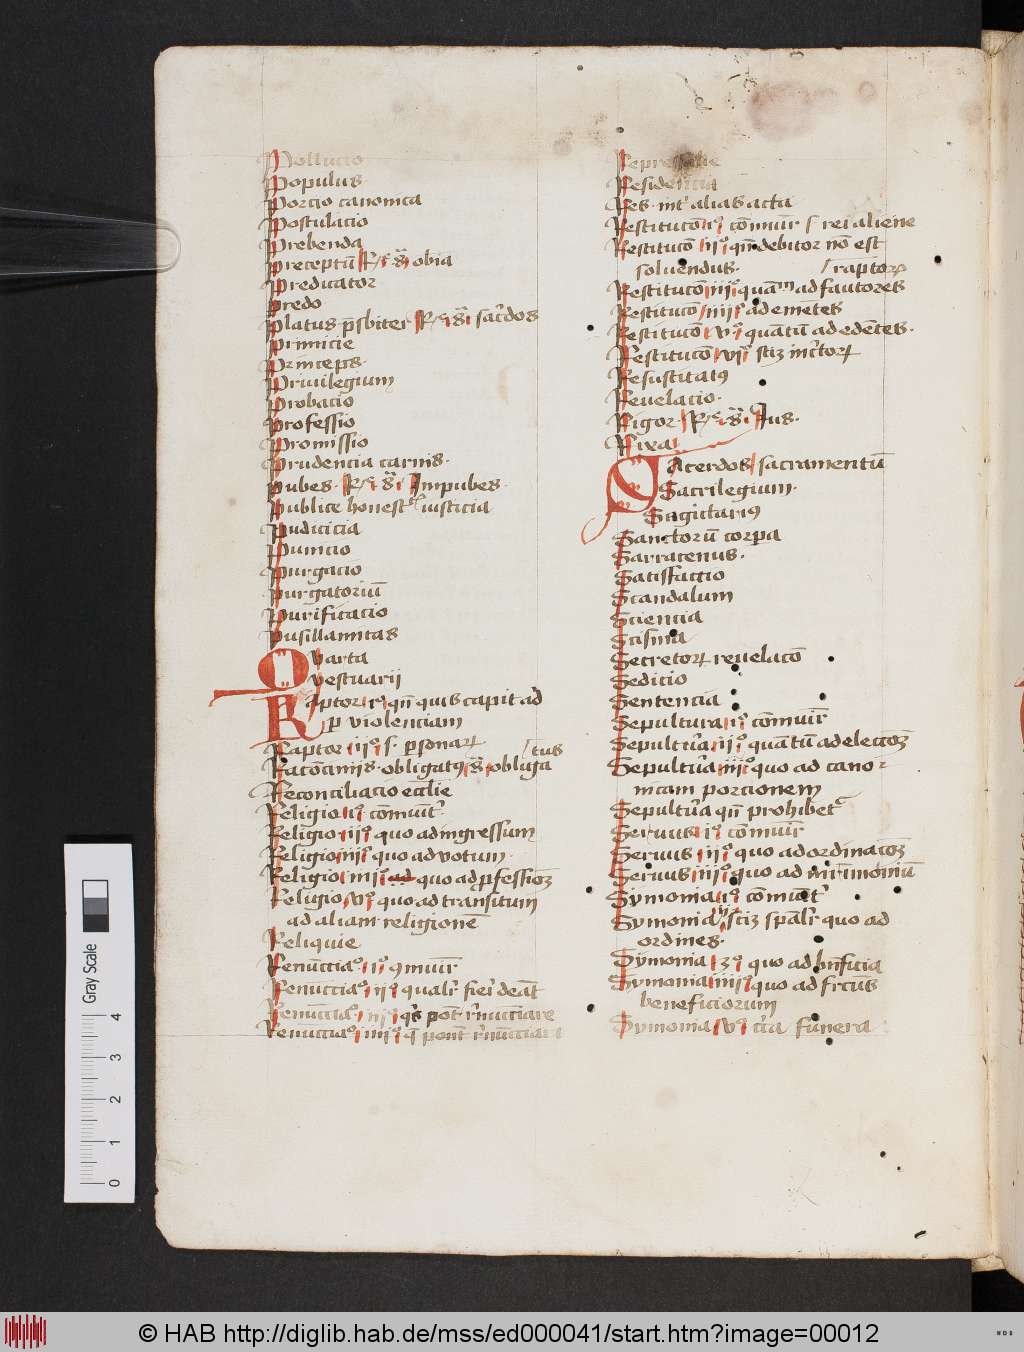 Pollucio
Populus
Porcio canonica
Postulacio
Prebenda
Preceptū Rͤ s̄ obia
Preducator
Predo
Platus p̄sbiter Rͤ s̄ sac̄dos
Primicie
Princeps
Priuilegium
Probacio
Professio
Promissio
Prudencia carnis.
Pubes. Rͤ s̄ Impubes.
Publice honest iusticia
Pudicicia
Punicio
Purgacio
Purgatoriū
Purificacio
Pusillanitas
Quarta
Questuarii
Raptor iº qn̄ quis capit ad
p violenciam
Raptor iiº s. psonarꝝ
/tus
obligatꝰ s̄ obliga
Reconciliacio eccl̄ie
Religio iº cōmuīt
Religio iiº quo ad ingressum
Religio iiiº quo ad votum
Religio iiiiº ad quo ad pfessionē
Religio vº quo ad transitum
ad aliam religionē
Reliquie
Renūcciaº iº ꝯmuīr
Renūcciaº iiº qualr̄ fieri deāt
Renūcciaº iiiº q̄s pot r̄nūcciare
Renūcciaº iiiiº q̄ pōnt r̄nūcciari
Represalie
Residencia
Res int̄ alias acta
Restitucō iº cōmuīr / rei aliene
Restitucō iiº qn̄ debitor nō est
soluendus. /raptorꝝ
Restitucō iiiº quām ad fautores
Restitucō iiiiº ad emētes
Restitucō vº quātū ad edētes.
Restitucō viº
Resuscitatꝰ
Reuelacio.
Rigor Rͤ s̄ Ius.
Rixa
Sacerdos sacramentū
Sacrilegium.
Sagittariꝰ
Sanctorū corpa
Sarracenus.
Satisfactio
Scandalum
Sciencia
Scisma
Secretorꝝ reuelacō
Sedicio
Sentencia
Sepultura iº cōmuīr
Sepultūra iiº quātū ad eleccōꝫ
Sepultūra iiiº quo ad cano
nicam porcionem
Sepultūra qn̄ prohibet
Seruus iº cōmuīr
Seruus iiº quo ad ordinacōꝫ
Seruus iiiº quo ad mr̄imoniū
Symonia iº cōmuīt
Symonia iiº sciꝫ sp̄alr̄ quo ad
ordines.
Symonia 3º quo ad bn̄ficia
Symonia iiiiº quo ad frc̄us
beneficiorum
Symonia vº cīa funera
Gray Scale
4
3
2
1
0
© HAB http://diglib.hab.de/mss/ed000041/start.htm?image=00012